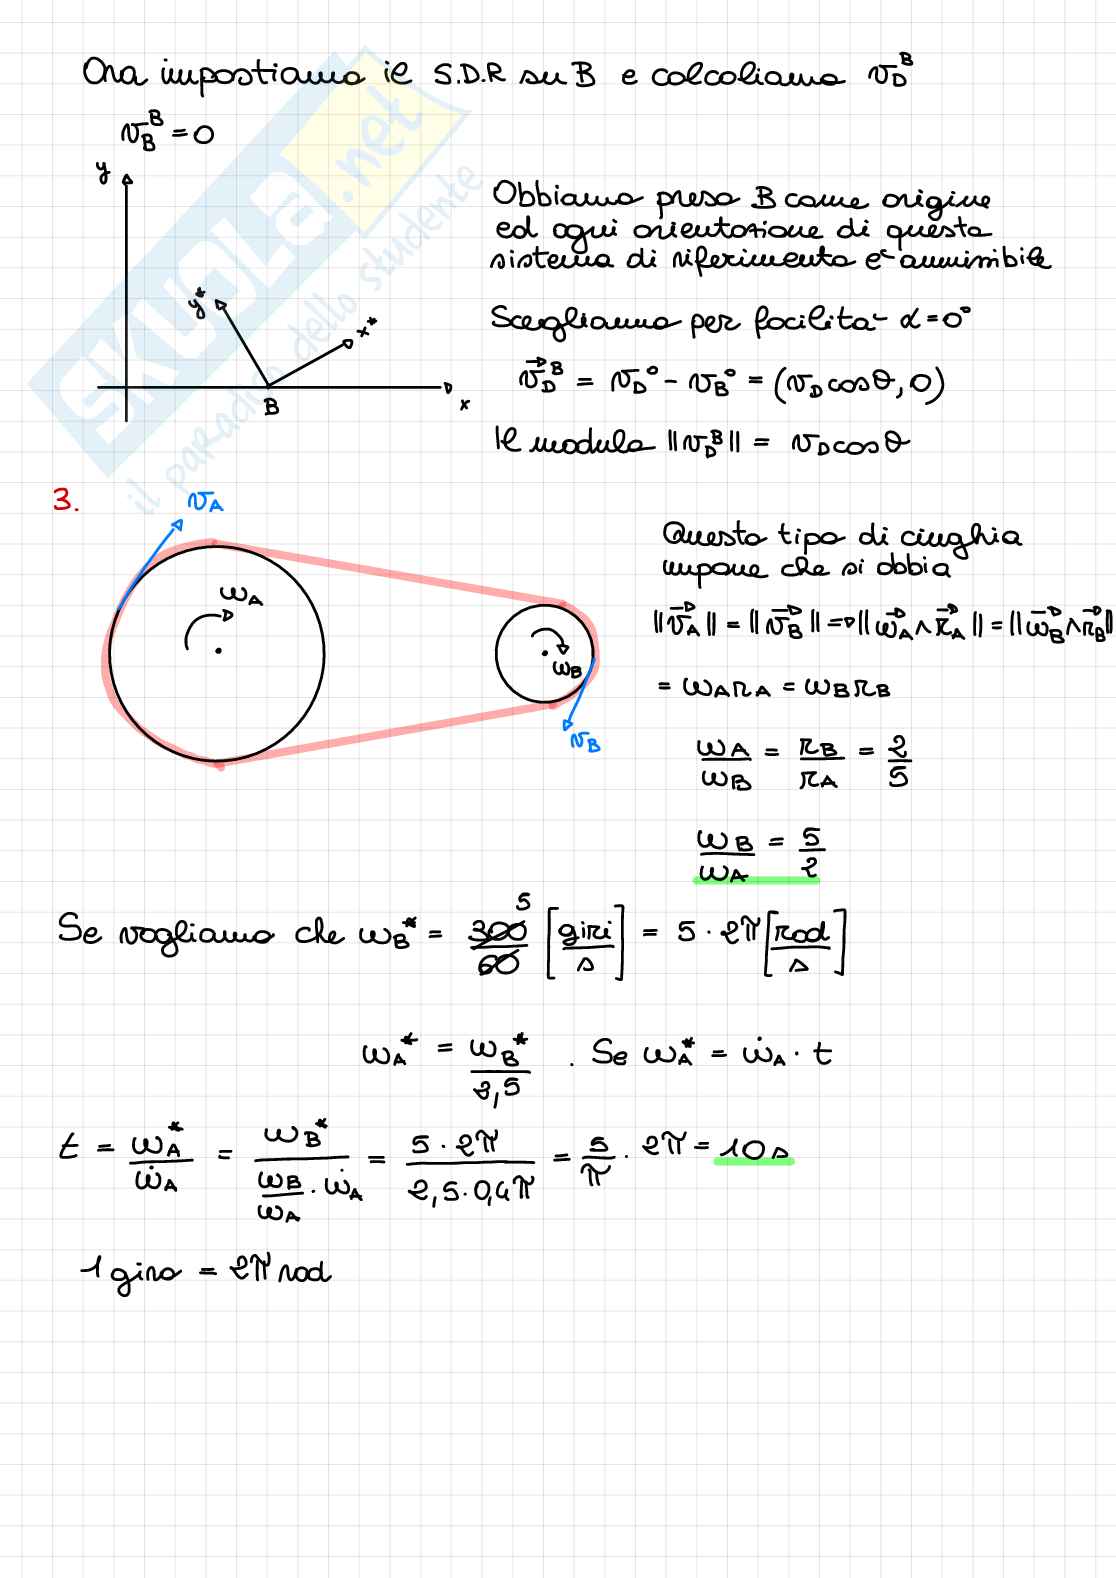 Ora impostiamo il S.D.R su B e calcoliamo v_D^B
v_B^B = 0
y
y*
x*
B
x
Abbiamo preso B come origine
ed ogni orientazione di questo
sistema di riferimento è ammissibile
Scegliamo per facilità α = 0°
v⃗_D^B = v_D^0 - v_B^0 = (v_D cosθ, 0)
Il modulo ||v_D^B|| = v_D cosθ
SKUOLA.net
il paradiso dello studente
3.
v_A
ω_A
ω_B
v_B
Questo tipo di cinghia
impone che si abbia
||v⃗_A|| = ||v⃗_B|| => ||ω⃗_A ∧ r⃗_A|| = ||ω⃗_B ∧ r⃗_B||
= ω_A r_A = ω_B r_B
ω_A/ω_B = r_B/r_A = 2/5
ω_B/ω_A = 5/2
Se vogliamo che ω_B* = 300/60 5 [giri/s] = 5 · 2π [rad/s]
ω_A* = ω_B*/2,5 . Se ω_A* = ω̇_A · t
t = ω_A*/ω̇_A = ω_B*/(ω_B/ω_A · ω̇_A) = 5 · 2π/(2,5 · 0,4π) = 5/π · 2π = 10 s
1 giro = 2π rad